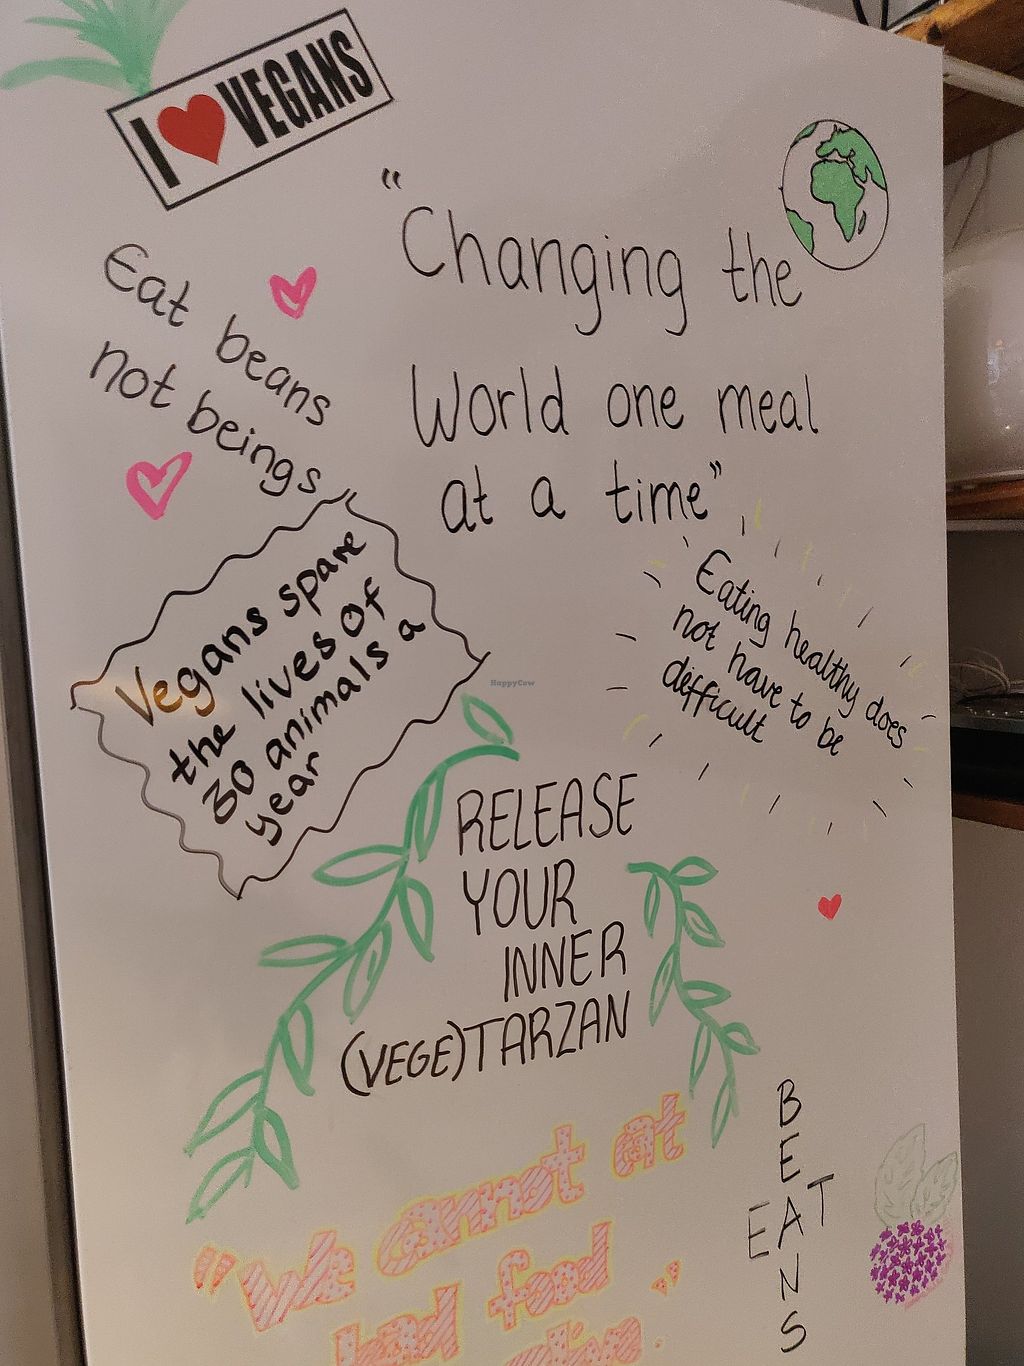 I ❤ VEGANS
"Changing the
World one meal
at a time"
Eat beans
not beings
Vegans spare
the lives of
30 animals a
year
Eating healthy does
not have to be
difficult
HappyCow
RELEASE
YOUR
INNER
(VEGE)TARZAN
BEANS
EAT
"We cannot at
bad food